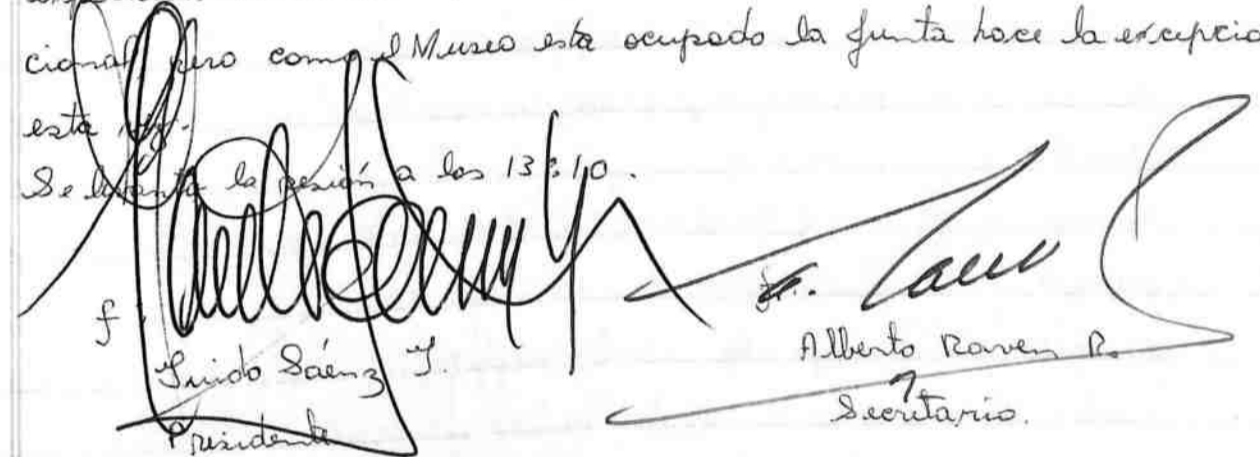 cional pero como el Museo está ocupado la Junta hace la excepció
esta vez.
Se levanta la sesión a las 13:10.
f.
Guido Sáenz G.
Presidente
Alberto Raven R.
Secretario.